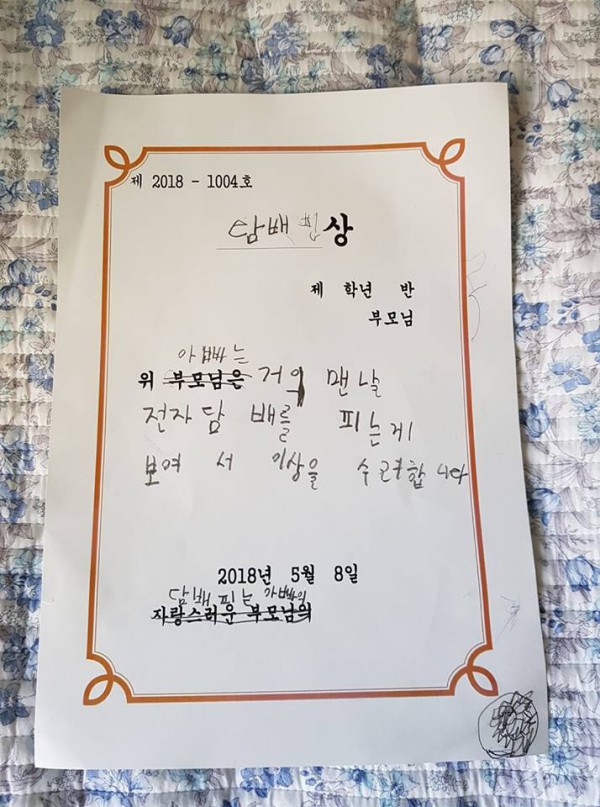 제 2018 - 1004호
담배 핀 상
제 학년 반
부모님
아빠는
위 부모님은 거의 맨날
전자담 배를 피는게
보여 서 이상을 수여합니다
2018년 5월 8일
담배 피는 아빠의
자랑스러운 부모님의